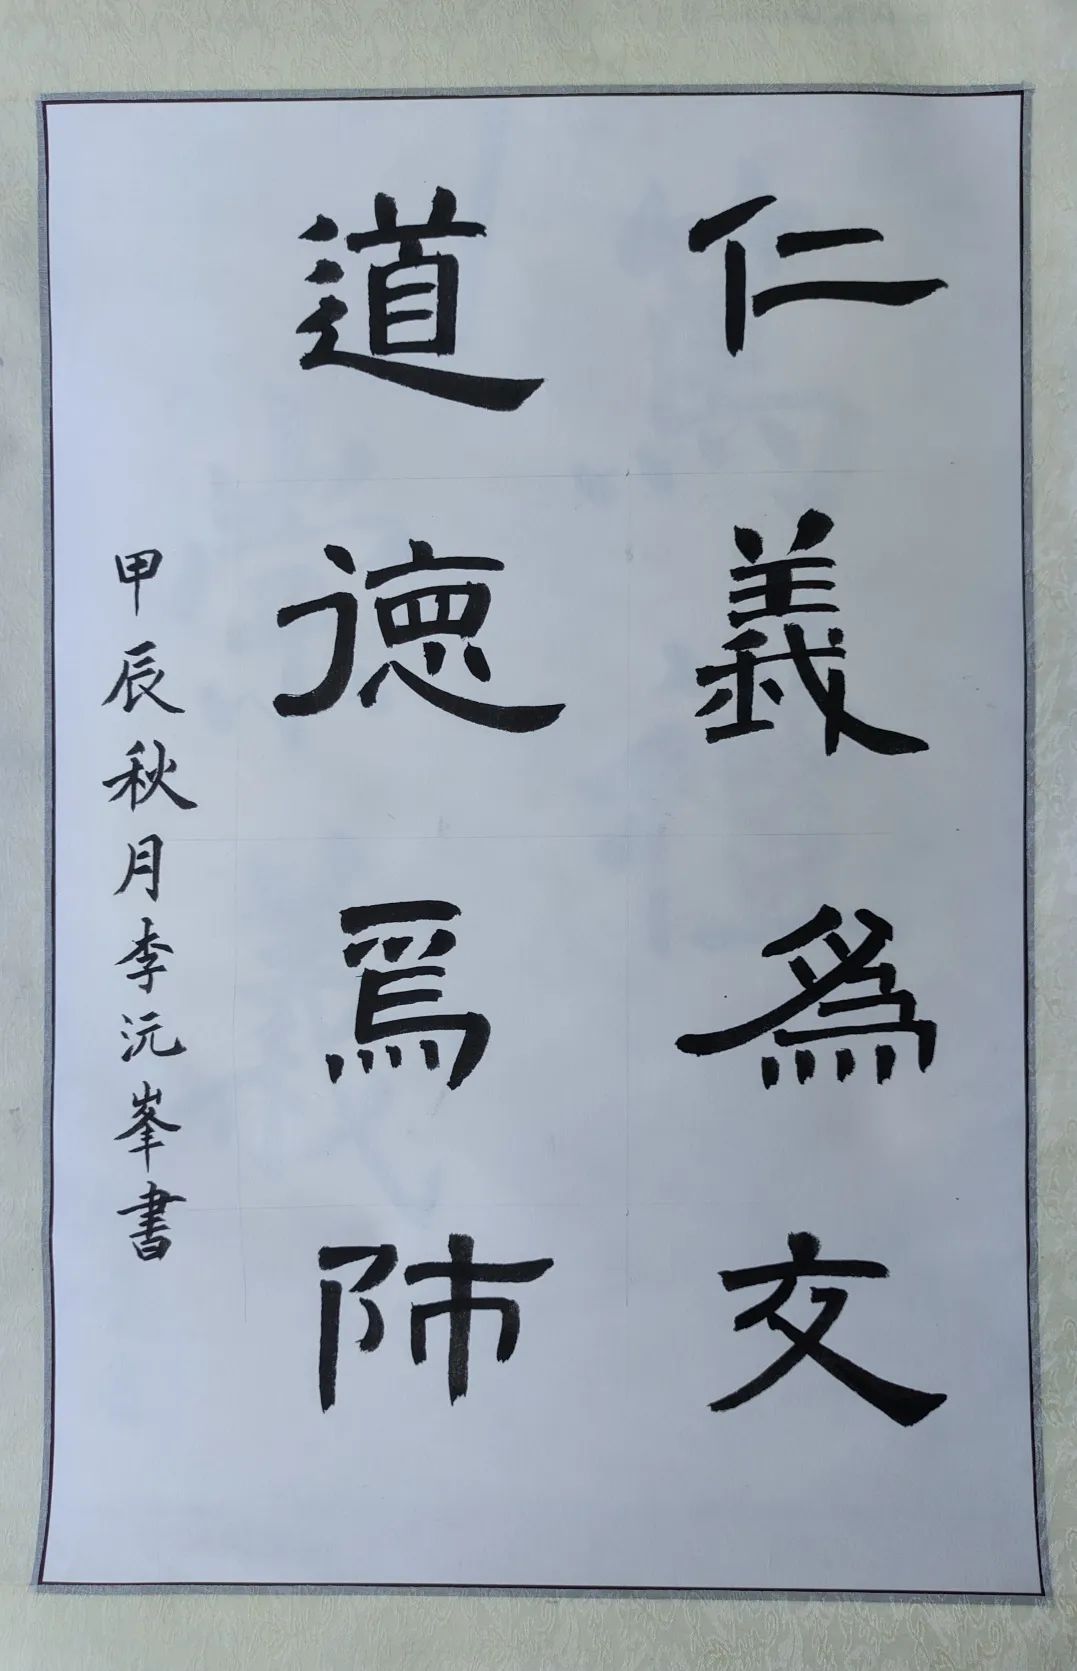 仁義爲友
道徳爲師
甲辰秋月李沅峯書